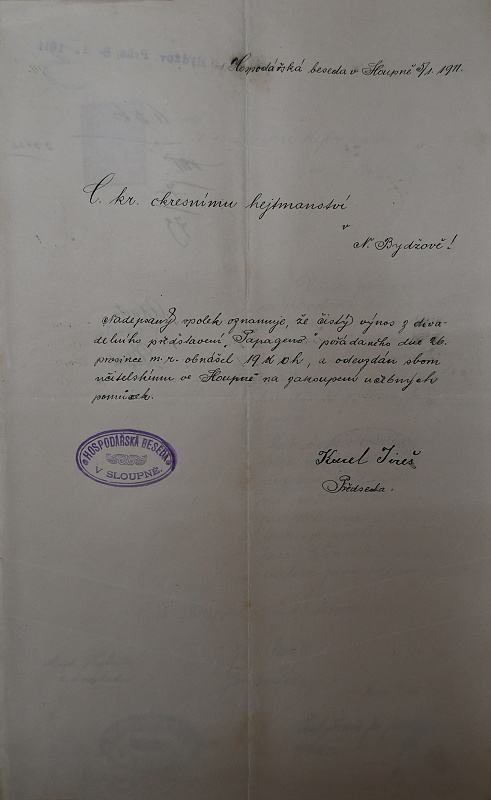 Hospodářská beseda v Sloupně 5/1. 1911.
C. kr. okresnímu hejtmanství
v
N. Bydžově!
Nadepsaný spolek oznamuje, že čistý výnos z diva-
delního představení, "Papageno" pořádaného dne 26.
prosince m. r. obnášel 19 K h, a odevzdán sboru
učitelskému ve Sloupně na zakoupení učebných
pomůcek.
HOSPODÁŘSKÁ BESEDA
V SLOUPNĚ.
Karel Jireš
Předseda.